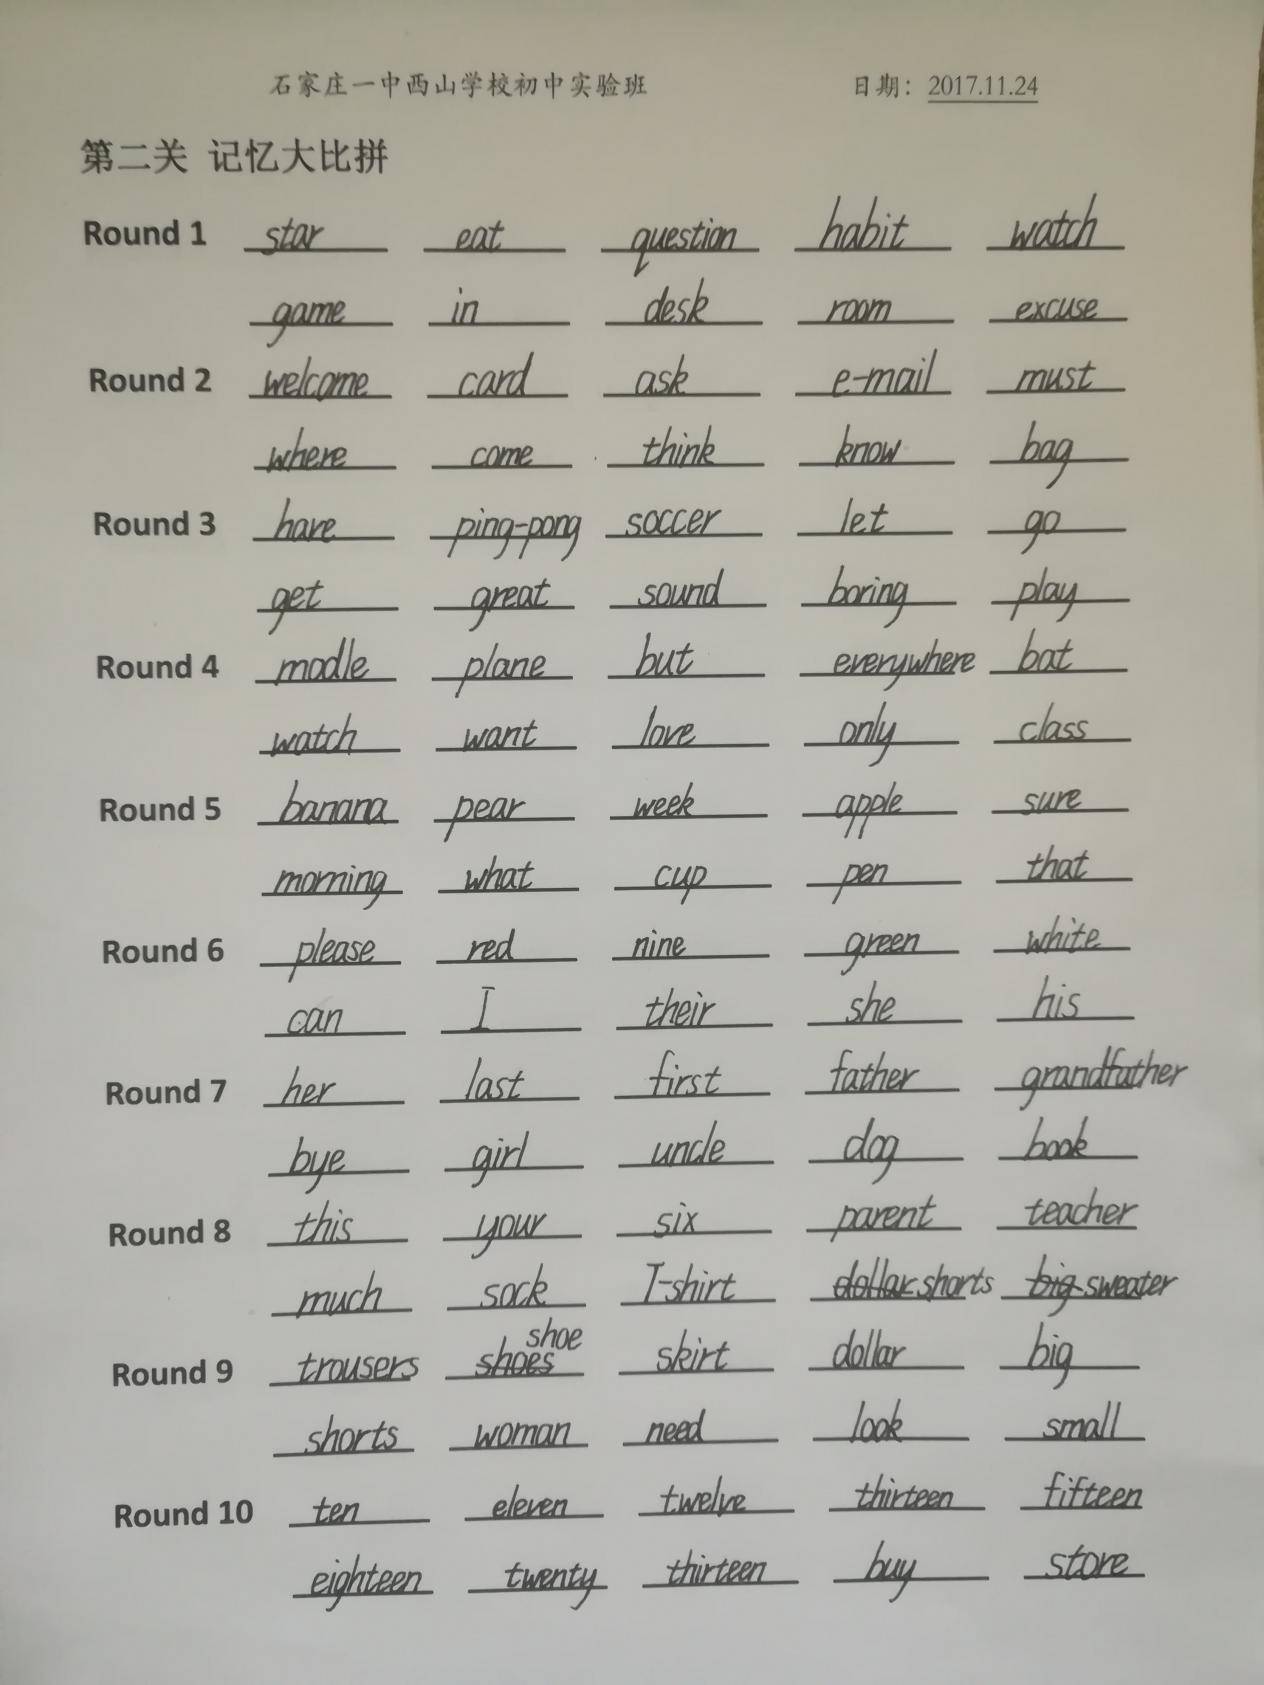 石家庄一中西山学校初中实验班 日期：2017.11.24
第二关 记忆大比拼
Round 1 star eat question habit watch
game in desk room excuse
Round 2 welcome card ask e-mail must
where come think know bag
Round 3 have ping-pong soccer let go
get great sound boring play
Round 4 modle plane but everywhere bat
watch want love only class
Round 5 banana pear week apple sure
morning what cup pen that
Round 6 please red nine green white
can I their she his
Round 7 her last first father grandfather
bye girl uncle dog book
Round 8 this your six parent teacher
much sock T-shirt dollar shorts big sweater
shoe
Round 9 trousers shoes skirt dollar big
shorts woman need look small
Round 10 ten eleven twelve thirteen fifteen
eighteen twenty thirteen buy store